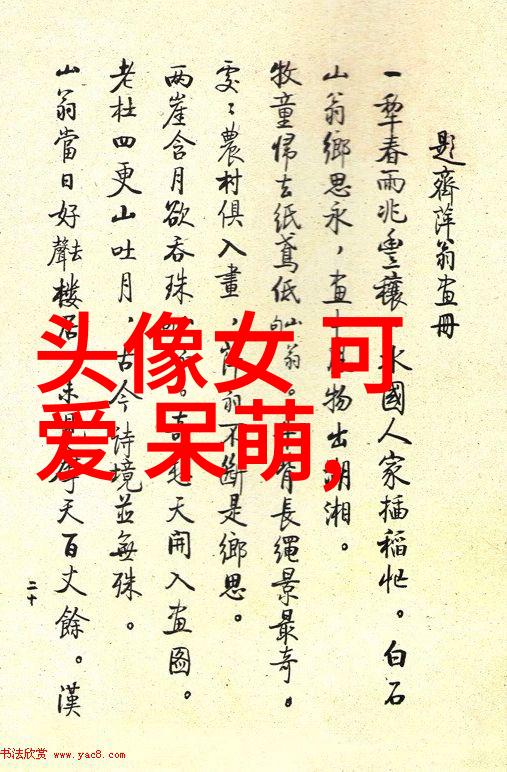 題齊萍翁畫冊
一犁春雨兆豐穰 水國人家插稻忙。白石
山翁鄉思永，畫 物出湖湘。
牧童歸去紙鳶低 山翁句。 背長繩景最奇。
處々農村俱入畫， 前不斷是鄉思。
兩崖含月欲吞珠 。 天開入畫圖。
老杜四更山吐月，古今詩境並無殊。
山翁當日好去聲樓居 摩天百丈餘。漢
二十
头像女 可
爱 呆萌,
书法欣赏 www.yac8.com